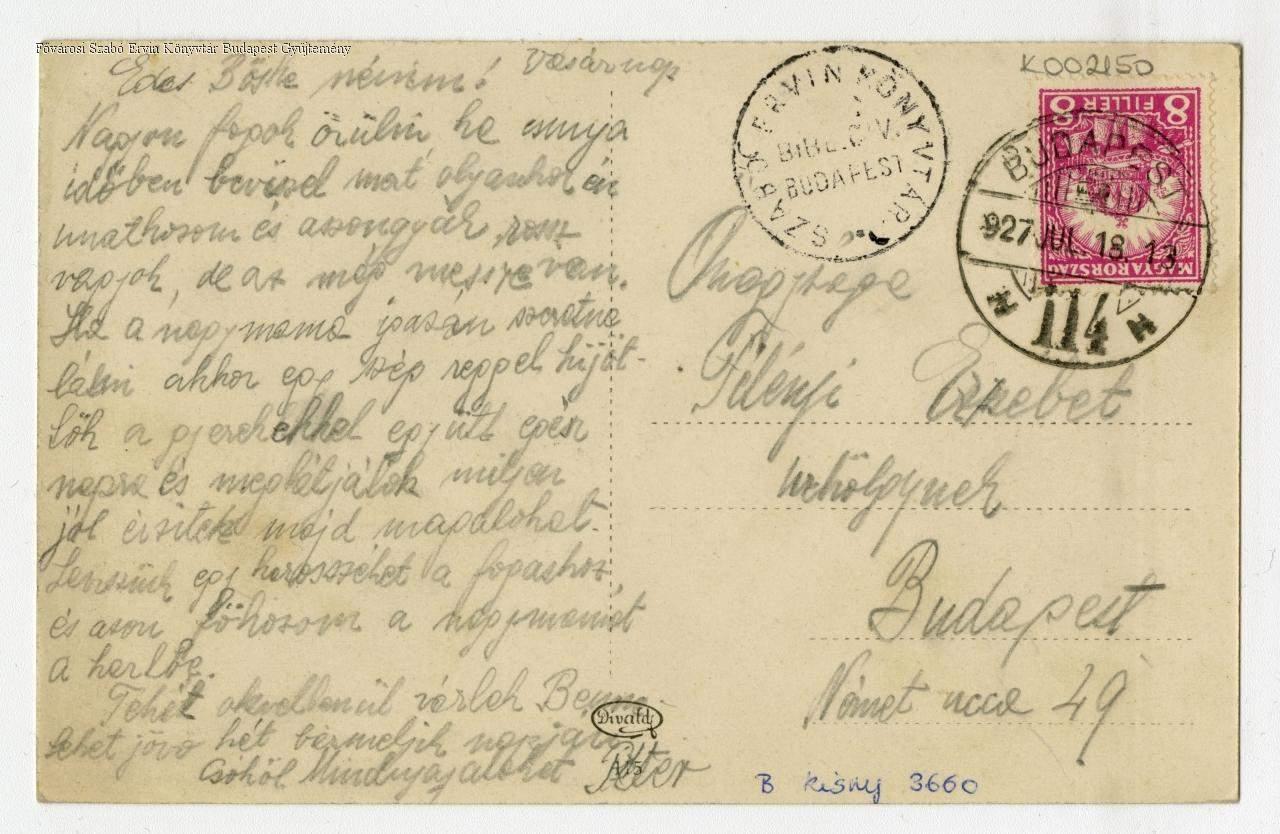 Fővárosi Szabó Ervin Könyvtár Budapest Gyűjtemény
Vasárnap
Édes Böske néném!
Nagyon fogok örülni ha csunya
időben bevised mert olyankor én
unatkozom és aszongyák, rossz
vagyok, de az még messze van.
Ha a nagymama igazán szeretne
látni akkor egy szép reggel kijöt-
tök a gyerekekkel együtt egész
napra és meglátjátok milyen
jól érzitek majd magatokat.
egy a fogashoz,
és azon a nagymamát
a kertbe.
Tehát okvetlenül várlak Benn-
teket jövő hét bármelyik napján
Csókol Mindnyájatokat Péter
K002150
SZABÓ ERVIN KÖNYVTÁR
BUDAPEST
8 FILLÉR 8
MAGYARORSZÁG
BUDAPEST
927 JUL. 18. 13
114
Őnagysága
Fényi Erzsébet
urhölgynek
Budapest
Német ucca 49
Divald
A15
B kisny 3660